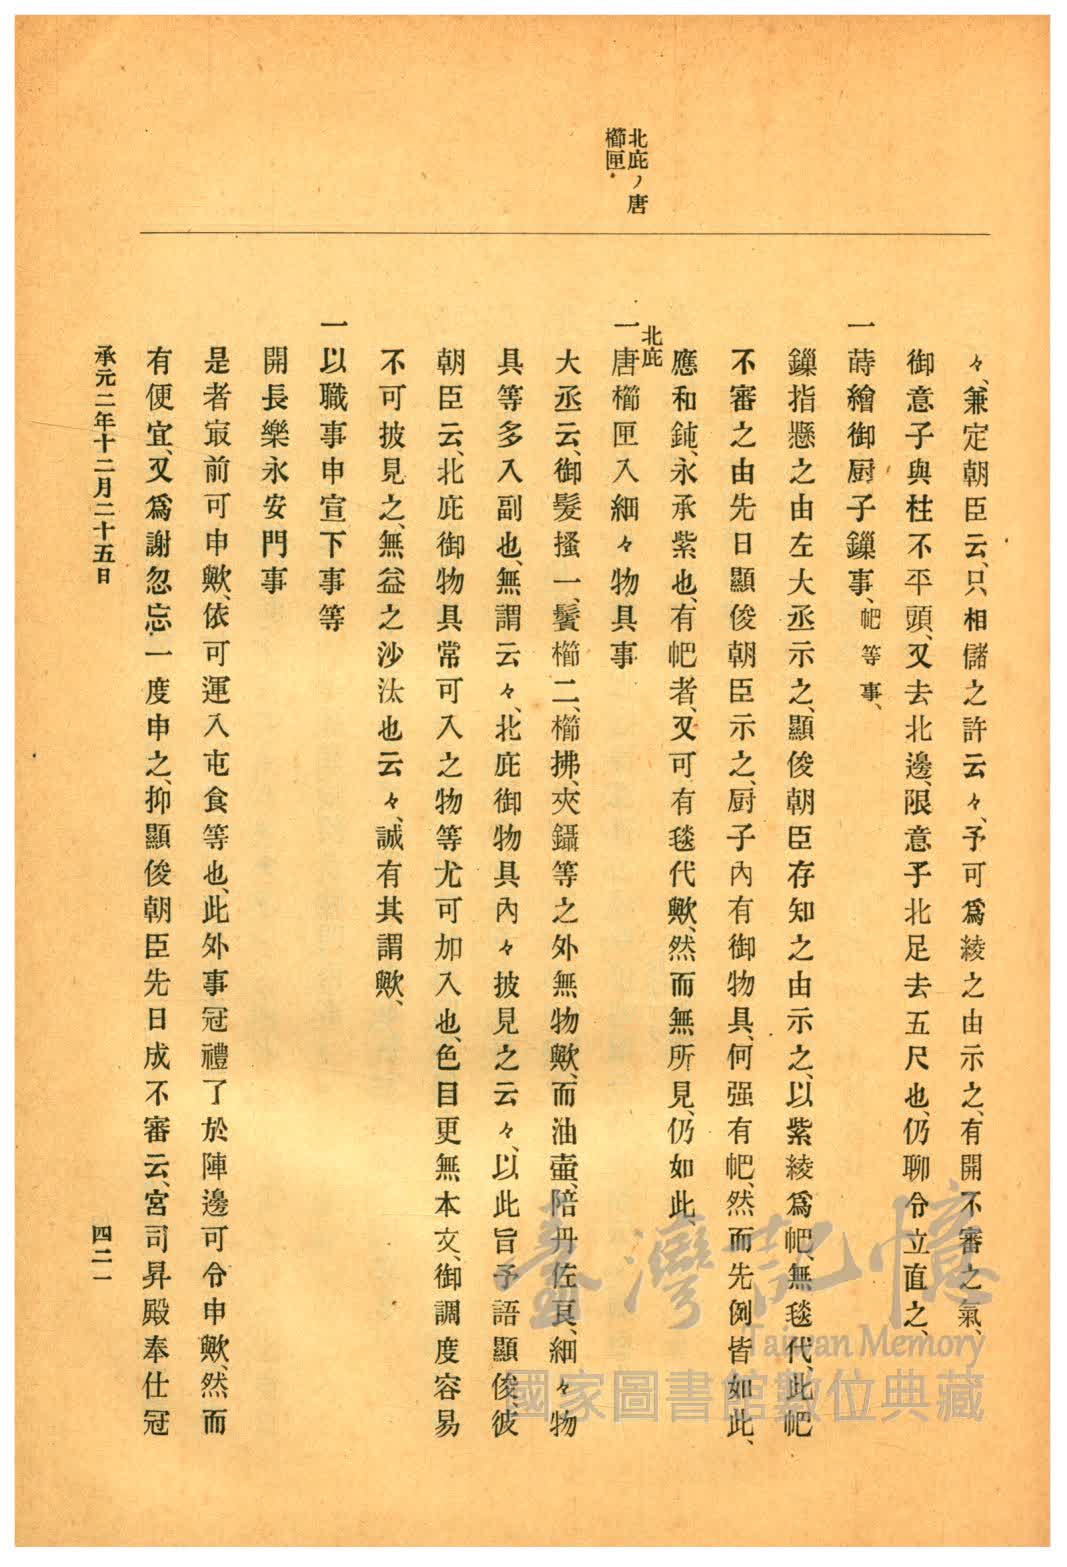 北庇ノ唐
櫛匣
々、兼定朝臣云、只相儲之許云々、予可爲綾之由示之、有開不審之氣、
御意子與柱不平頭、又去北邊、限意予北足去五尺也、仍聊令立直之、
一蒔繪御厨子鏁事、帊等事、
鏁指懸之由左大丞示之、顯俊朝臣存知之由示之、以紫綾爲帊、無毯代、此帊
不審之由先日顯俊朝臣示之、厨子內有御物具、何强有帊、然而先例皆如此、
應和鈍、永承紫也、有帊者、又可有毯代歟、然而無所見、仍如此、
北庇
一唐櫛匣入細々物具事
大丞云、御髮搔一、鬢櫛二、櫛拂、夾鑷等之外無物歟、而油壷、陪丹佐良、細々物
具等多入副也、無謂云々、北庇御物具內々披見之云々、以此旨予語顯俊、彼
朝臣云、北庇御物具常可入之物等尤可加入也、色目更無本文、御調度容易
不可披見之、無益之沙汰也云々、誠有其謂歟、
一以職事申宣下事等
開長樂永安門事
是者㝡前可申歟、依可運入屯食等也、此外事冠禮了於陣邊可令申歟、然而
有便宜、又爲謝忽忘一度申之、抑顯俊朝臣先日成不審云、宮司昇殿奉仕冠
承元二年十二月二十五日
四二一
臺灣記憶
Taiwan Memory
國家圖書館數位典藏